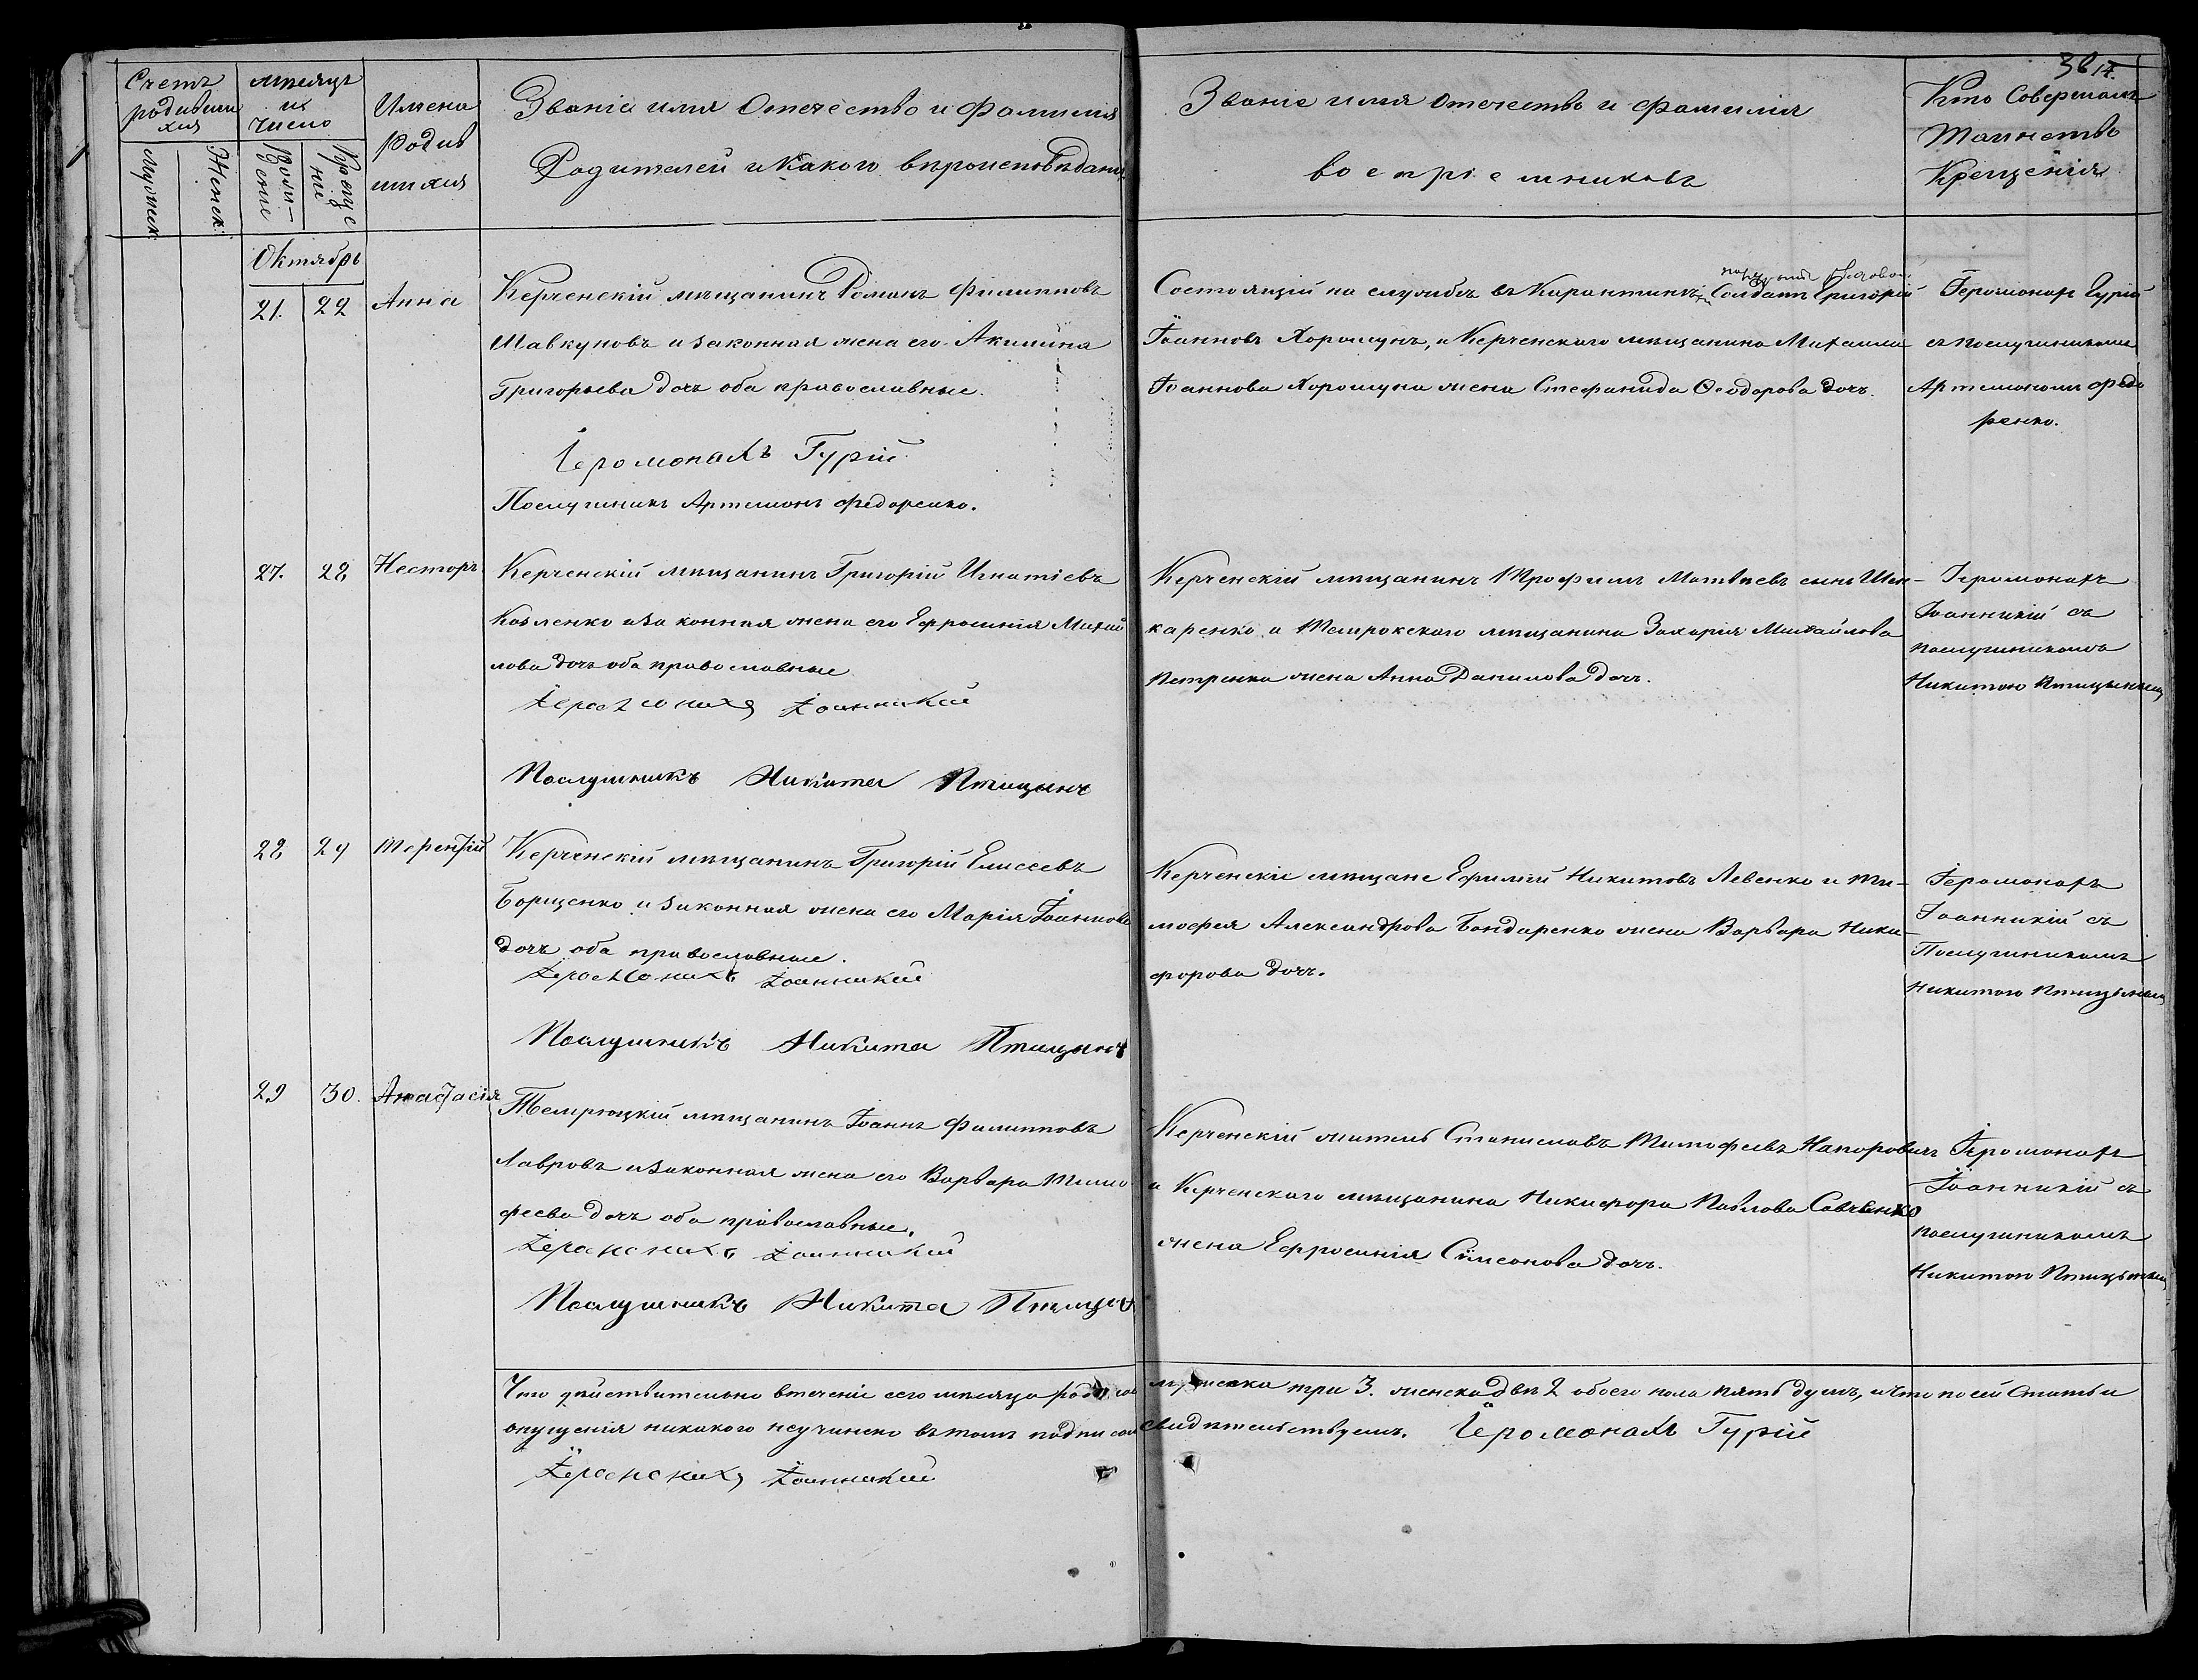 36 17.
Счетъ родившихся
Мужеск:
Женск:
Месяцъ и число
Рождение
Крещение
Имена Родившихся
Званіе имя Отечество и фамилія
Родителей и какого вероисповеданія
Званіе имя Отечество и фамилія
воспріемниковъ
Кто Совершалъ
Таинство
Крещенія
Октябрь
21. 22 Анна
Керченскій мещанинъ Романъ Филипповъ
Шавкуновъ и законная жена его Акилина
Григорьева дочь оба православные.
Іеромонахъ Гурій
Послушникъ Артемонъ Федоренко.
Состоящій на службе въ Карантине Солдатъ Григорій
Іоанновъ Хорошунъ, и Керченскаго мещанина Михаила
Іоаннова Хорошуна жена Стефанида Ѳеодорова дочь.
Іеромонах Гурій
съ послушникомъ
Артемономъ Федо
ренко.
27. 28 Несторъ
Керченскій мещанинъ Григорій Игнатіевъ
Козленко и законная жена его Ефросинія Михаи
лова дочь оба православные
Іеромонахъ Іоанникій
Послушникъ Никита Птицынъ
Керченскій мещанинъ Трофимъ Матвеевъ сынъ Шин-
каренко и Темрюкскаго мещанина Захарія Михайлова
Петренка жена Анна Данилова дочь.
Іеромонахъ
Іоанникій съ
послушникомъ
Никитою Птицынымъ
28 29 Терентій
Керченскій мещанинъ Григорій Елисеевъ
Борщенко и законная жена его Марія Іоаннова
дочь оба православные.
Іеромонахъ Іоанникій
Послушникъ Никита Птицынъ
Керченскіе мещане Ефимій Никитовъ Левенко и Ти-
мофея Александрова Бондаренко жена Варвара Ники-
форова дочь.
Іеромонахъ
Іоанникій съ
Послушникомъ
Никитою Птицынымъ
29 30. Анастасія
Темрюцкій мещанинъ Іоаннъ Филипповъ
Лавровъ и законная жена его Варвара Тимо
феева дочь оба православные.
Іеромонахъ Іоанникій
Послушникъ Никита Птицын
Керченскій житель Станиславъ Тимофеевъ Напоровичъ
и Керченскаго мещанина Никифора Павлова Савченко
жена Ефросинія Симеонова дочь.
Іеромонахъ
Іоанникій съ
послушникомъ
Никитою Птицынымъ
Что действительно втеченіе сего месяца родилось мужеска три 3. женска две 2 обоего пола пять душъ, и что по сей Статьи
опущенія никакого неучинено въ томъ подписомъ свидетельствуемъ. Іеромонахъ Гурій
Іеромонахъ Іоанникій